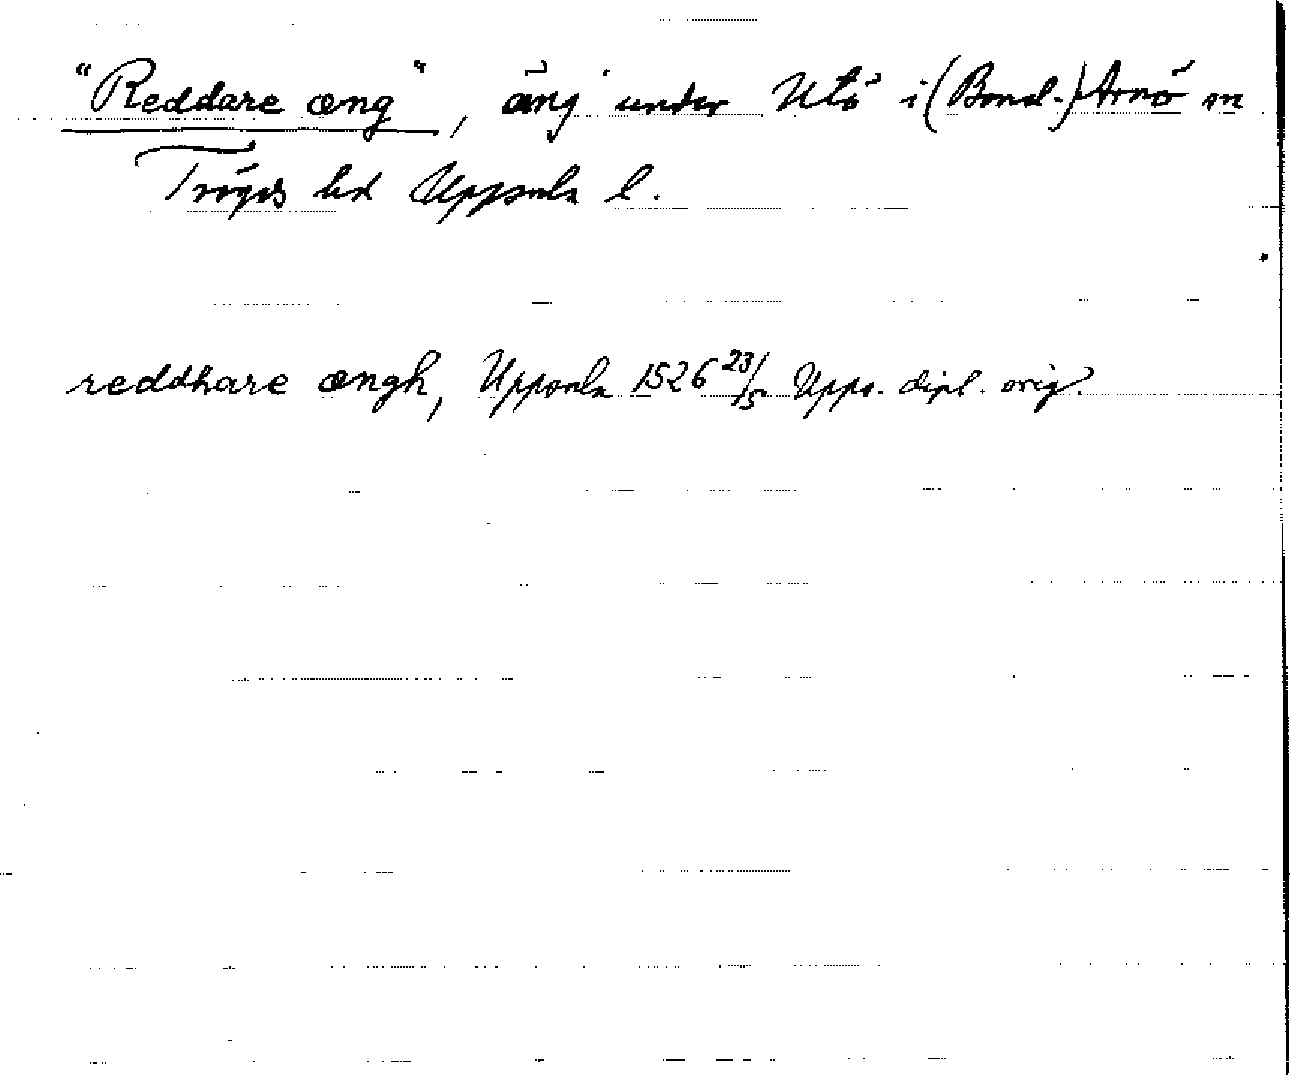 "Reddare æng", äng under Utö i (Bond-) Arnö sn
Trögds hd Uppsala l.
reddhare ængh, Uppsala 1526 23/5 Upps. dipl. orig.